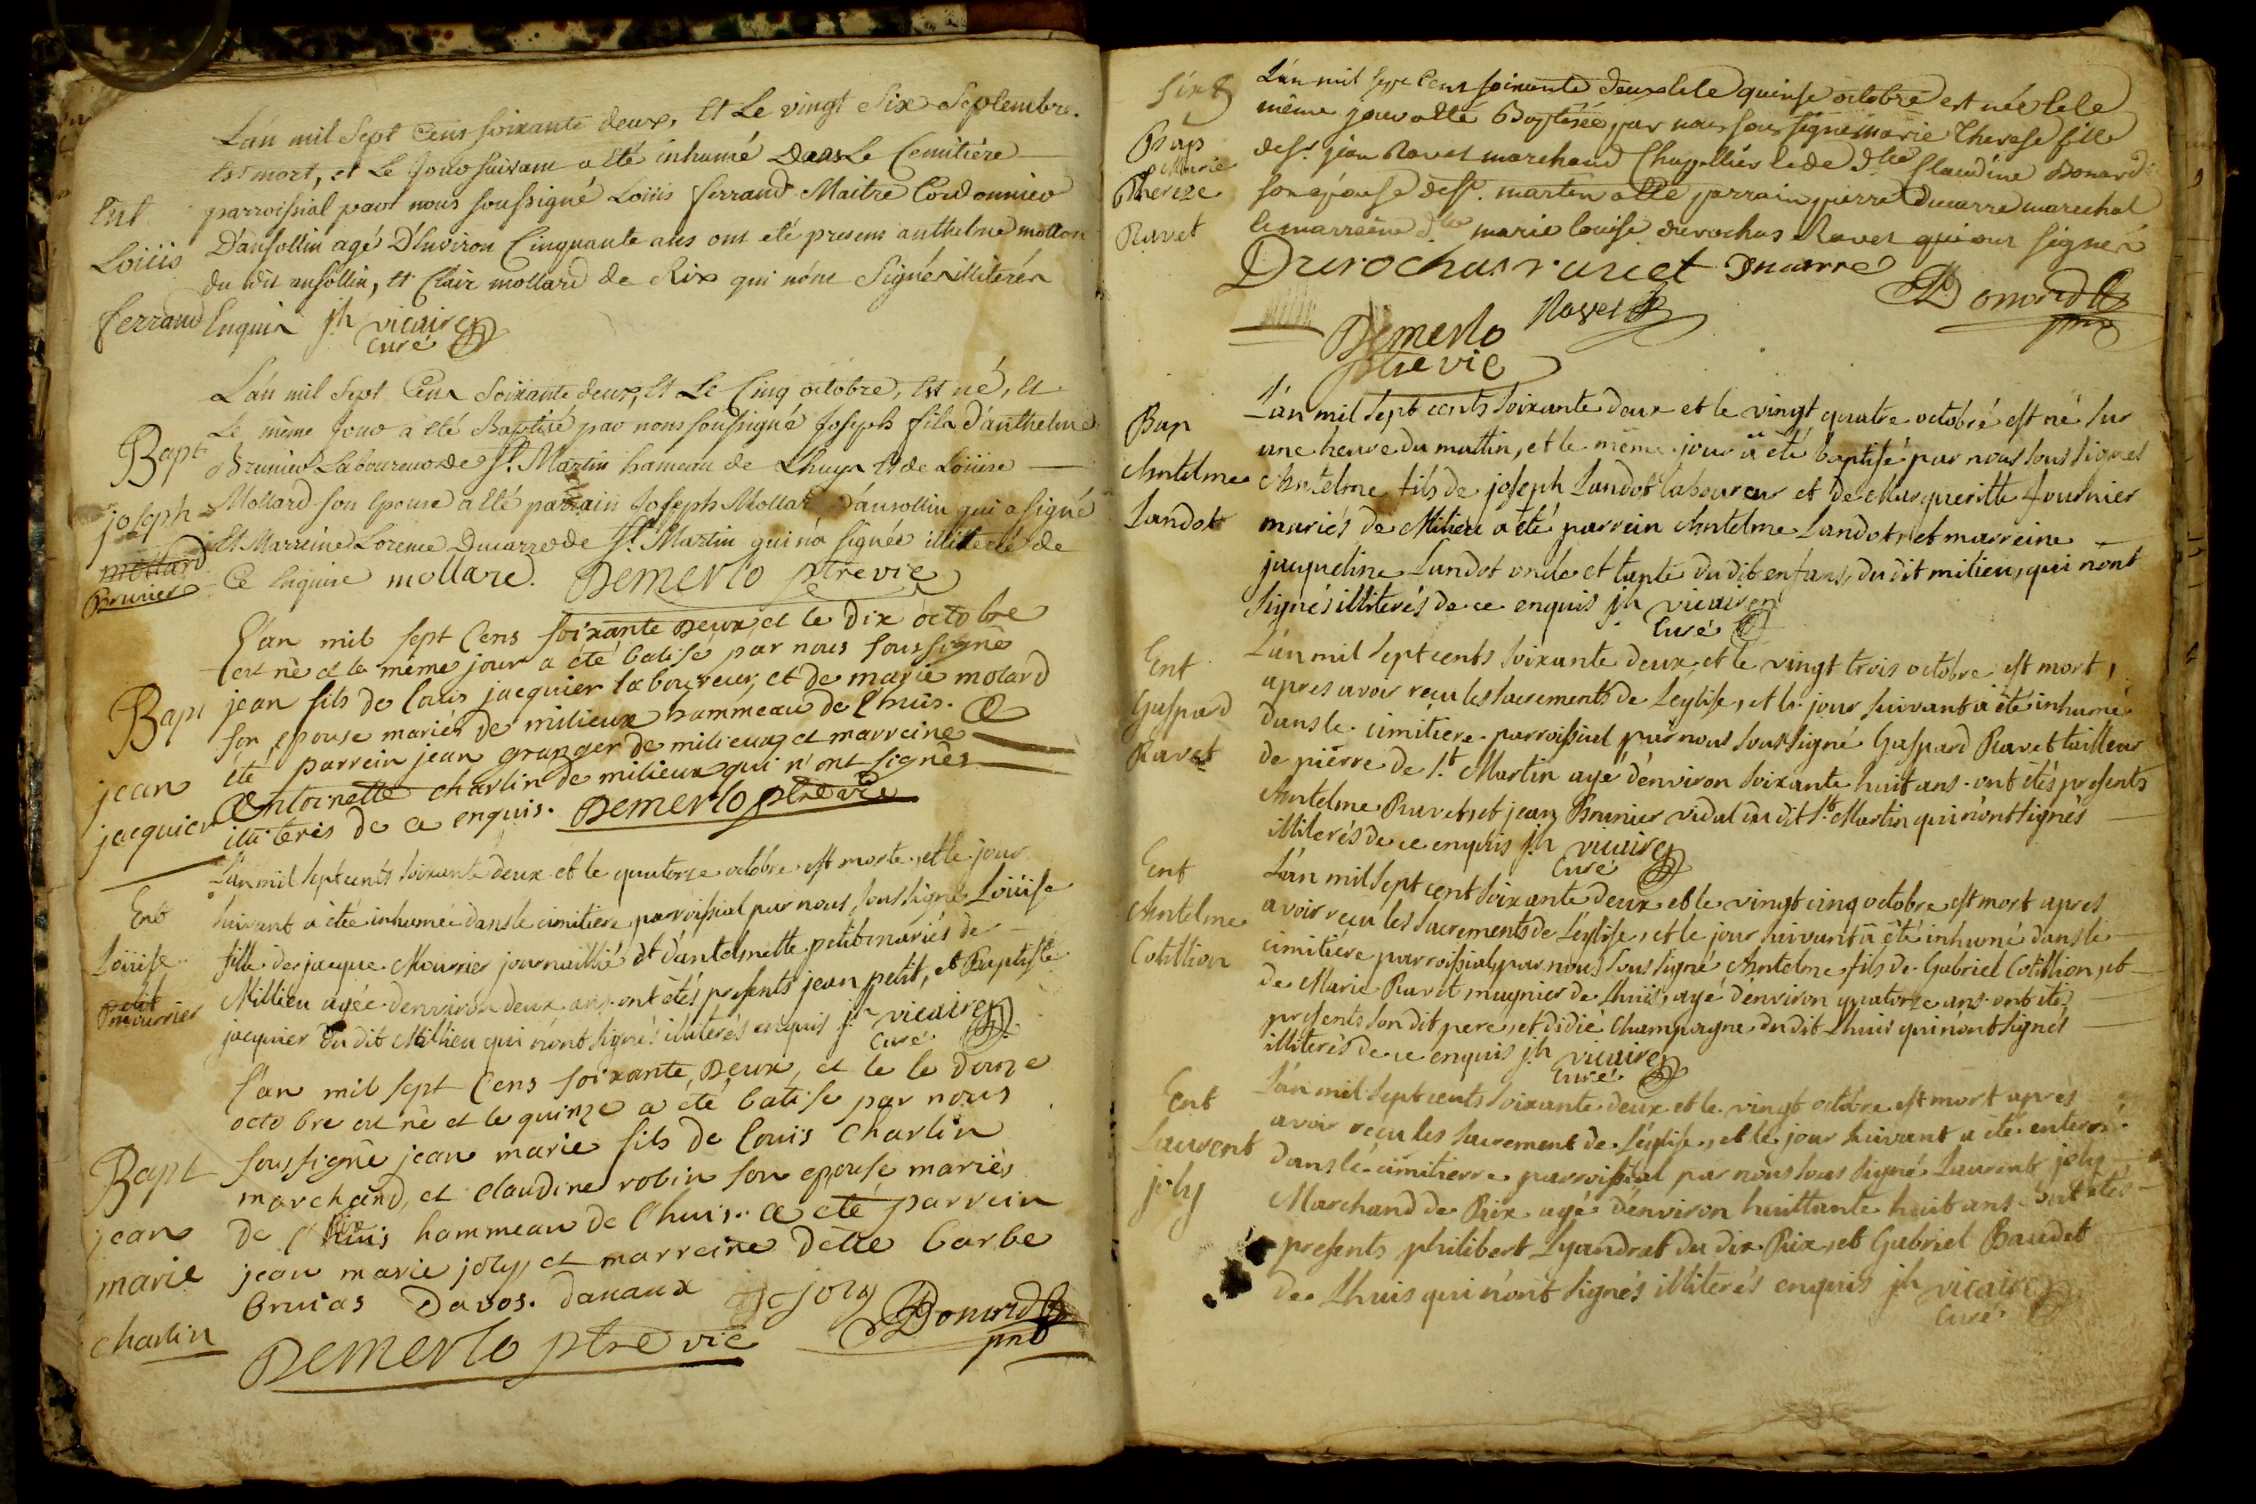 L'an mil Sept Cens soixante deux, Et Le vingt Six Septembre
Est mort, et Le Jour suivant a été inhumé Dans Le Cemitière
Ent
parroissial par nous soussigné Loüis ferrand Maitre Cordonnier
Loüis
D'ansollin agé D'Environ Cinquante ans ont été presens anthelme mollard
du dit ansollin, et Clair mollard de Rix qui n'ont Signés illiterés
ferrand
Enquis jh vicaire
curé
L'an mil Sept Cens Soixante deux, Et Le Cinq octobre, Est né, Et
Le même Jour a été Baptisé par nous soussigné Joseph fils D'anthelme
Bapt
Brunier Laboureur de St. Martin hameau de Lhuys Et de Loüise
joseph
Mollard son Epouse a été parrain Joseph Mollard D'ansollin qui a signé
mollard
Et Marreine Lorence Ducarre de St. Martin qui n'a signé illiterée de
Brunier
Ce Enquise mollard. Demerlo ptre vic
L'an mil sept Cens soixante Deux et le dix octobre
est né et le même jour a été batisé par nous soussigné
Bapt
jean fils de Louis jacquier laboureur, et de marie molard
son epouse mariés de milieux hammeau de l'huis. a
jean
été parrein jean granger de milieux et marreine
jacquier
Antoinette charlin de milieux qui n'ont signés
illiterés de ce enquis. Demerlo ptre vic
L'an mil sept cents soixante deux et le quatorze octobre est morte, et le jour
Ent
suivant a été inhumée dans le cimitière parroissial par nous sous signé Loüise
Loüise
fille de jacque Mourrier journaillié et d'antelmette petit mariés de
petit
mourrier
Millieu agée denviron deux ans ont étés presents jean petit, et Baptiste
jacquier du dit Millieu qui n'ont signés illiterés enquis jh vicaire
curé
L'an mil sept Cens soixante Deux, et le le Douze
octobre est né et le quinze a été batisé par nous
Bapt
soussigné jean marie fils de Louis Charlin
marchand, et Claudine robin son epouse mariés
jean
de l'huis hammeau de l'huis. a été parrein
marie
jean marie joly, et marreine Delle barbe
charlin
Davos. davaux joly Bonard
Demerlo ptre vic
L'an mil sept Cens soixante deux et le quinse octobre est née et le
même jour a été Baptisée par nous sous signé marie Therese fille
Bap
marie
de Sr. jean Ravet marchand Chapellier et de dlle Claudine Bonard
Thereze
son epouse de St. martin a été parrain pierre Ducarre marechal
Ravet
et marraine dlle marie louise durochas Ravet qui ont signés
Durochas ravet Ducarre
Bonard
Ravet
Demerlo
ptre vic
L'an mil sept cents soixante deux et le vingt quatre octobre est né sur
Bap
une heure du mattin, et le même jour a été baptisé par nous sous signés
Antelme
Antelme fils de joseph Landot laboureur et de Margueritte fournier
Landot
mariés de Milieu a été parrein Antelme Landot, et marreine
jaqueline Landot oncle et tante du dit enfans, du dit milieu, qui n'ont
signés illiterés de ce enquis jh vicaire
Curé
L'an mil sept cents soixante deux, et le vingt trois octobre est mort,
Ent
apres avoir reçu les sacrements de l'eglise, et le jour suivant a été inhumé
Gaspard
dans le cimitiere parroissial par nous sous signé Gaspard Ravet tailleur
Ravet
de pierre de St. Martin agé d'environ soixante huit ans ont étés presents
Antelme Ravet, et jean Brunier vidal du dit St. Martin qui n'ont signés
illiterés de ce enquis jh vicaire
Curé
Ent
L'an mil sept cent soixante deux et le vingt cinq octobre est mort apres
Antelme
avoir reçu les sacrements de l'eglise, et le jour suivant a été inhumé dans le
Cotillion
cimitiere parroissial, par nous sous signé Antelme fils de Gabriel Cotillion, et
de Marie Ravet magnier de Lhuis, agé d'environ quatorze ans ont étés
presents son dit pere, et didié Champagne du dit Lhuis qui n'ont signés
illiterés de ce enquis jh vicaire
Curé
Ent
L'an mil sept cents soixante deux et le vingt octobre est mort apres
Laurent
avoir reçu les sacrement de l'eglise, et le jour suivant a été enterré
joly
dans le cimitierre parroissial par nous sous signé Laurent joly
Marchand de Rix agé d'environ huittante huit ans ont étés
presents philibert Lyandrat du dix Rix, et Gabriel Baudet
de Lhuis qui n'ont signés illiterés enquis jh vicaire
Curé